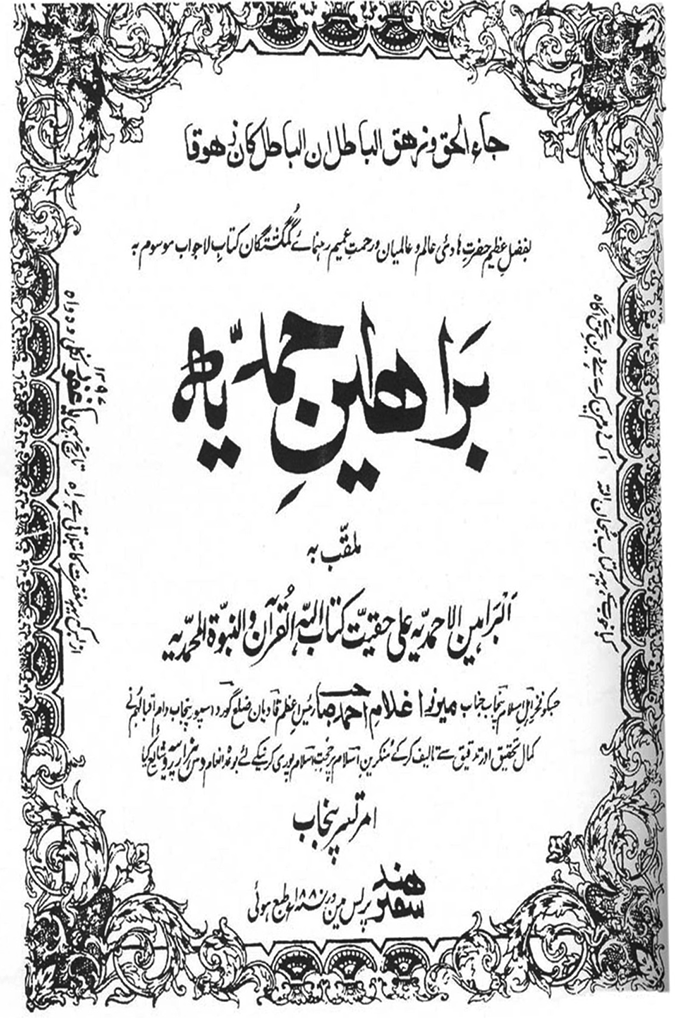 جاء الحق وزهق الباطل ان الباطل كان زهوقا
بفضلِ عظیم حضرت ہادئ عالم و عالمیان و رحمتِ عمیم رہنمائے گمگشتگان کتاب لاجواب موسوم بہ
بَراهینِ احمدیّہ
ملقّب بہ
اَلبراہین الاحمدیہ علی حقیت کتاب اللہ القُرآن والنبوّة المحمدیہ
جسکو فخر اہل اسلام پنجاب جناب میرزا غلام احمد صاحب رئیس اعظم قادیان ضلع گورداسپور پنجاب دام اقبالہم نے
کمال تحقیق اور تدقیق سے تالیف کرکے منکرین اسلام پر حجت اسلام پوری کرنیکے لئے بوعدہ انعام دس ہزار روپیہ شائع کیا
امرتسر پنجاب
سفیر ہند
پریس میں در ۱۸۸۰ء طبع ہوئی